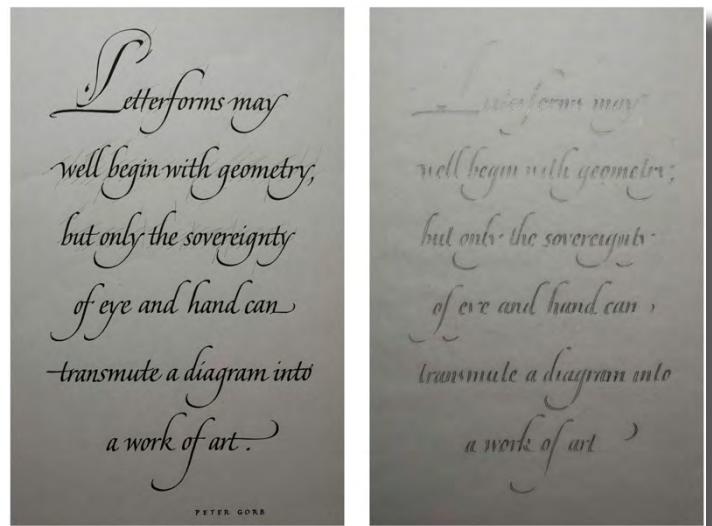 Letterforms may
well begin with geometry,
but only the sovereignty
of eye and hand can
transmute a diagram into
a work of art.
PETER GORB
Letterforms may
well begin with geometry,
but only the sovereignty
of eye and hand can
transmute a diagram into
a work of art